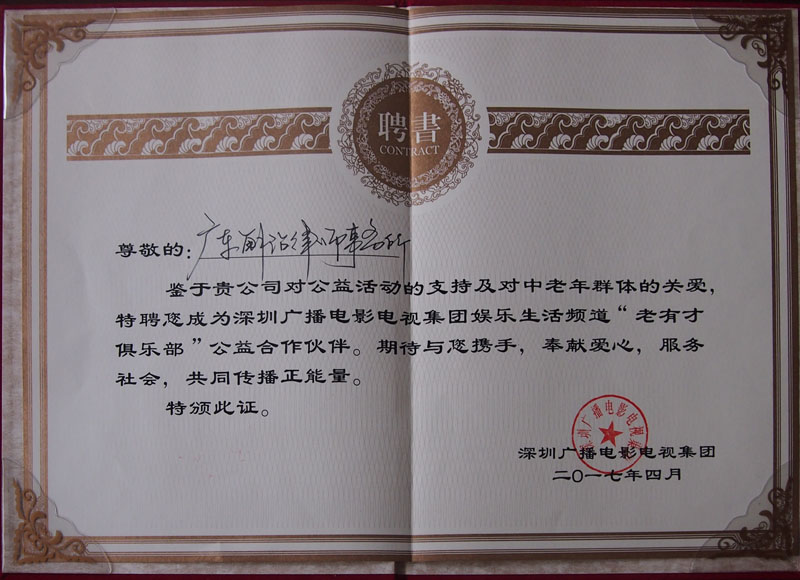 聘書
CONTRACT
尊敬的：广东 律师事务所
鉴于贵公司对公益活动的支持及对中老年群体的关爱，
特聘您成为深圳广播电影电视集团娱乐生活频道“老有才
俱乐部”公益合作伙伴。期待与您携手，奉献爱心，服务
社会，共同传播正能量。
特颁此证。
深圳广播电影电视集团
深圳广播电影电视集团
二〇一七年四月